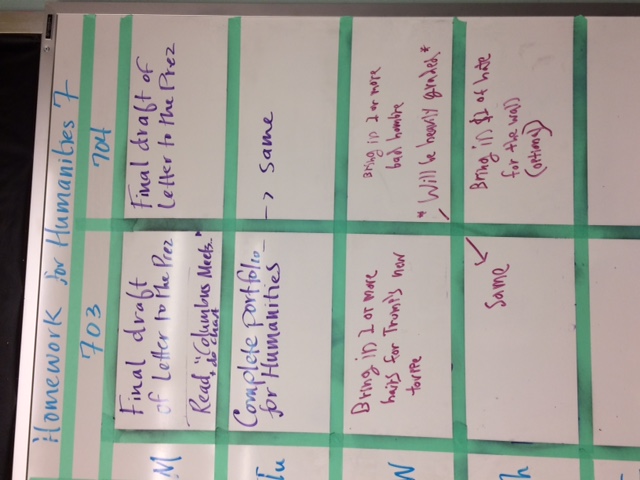 Homework for Humanities 7
703
704
M
Final draft
of Letter to the Prez
Read, "Columbus Meets..."
+ do chart
Final draft of
Letter to the Prez
Tu
Complete portfolio
for Humanities
→ Same
W
Bring in 2 or more
hairs for Trump's new
Bring in 2 or more
bad hombre
* Will be heavily graded *
h
Same
Bring in $1 of hate
for the wall
(optional)